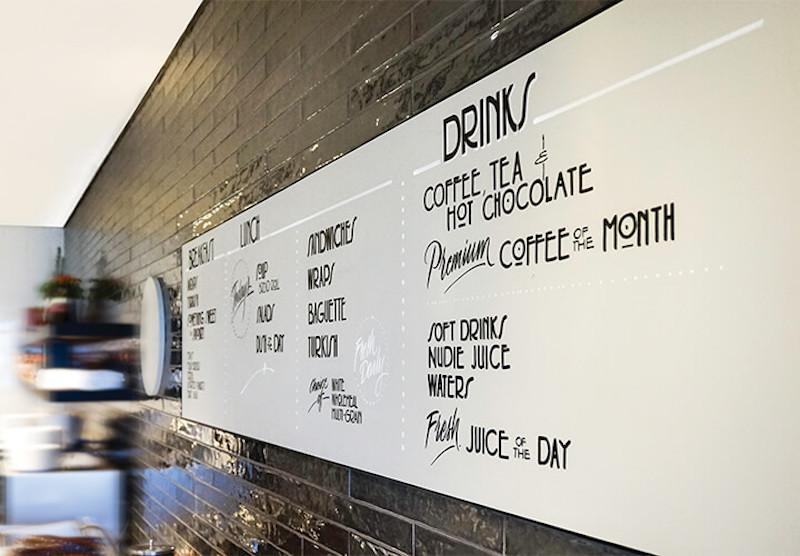 BREAKFAST
SOMETHING SWEET
LUNCH
Today's
SOUP
SALADS
DISH OF THE DAY
SANDWICHES
WRAPS
BAGUETTE
TURKISH
Fresh
Daily
choice of
WHITE
WHOLEMEAL
MULTI-GRAIN
DRINKS
COFFEE, TEA &
HOT CHOCOLATE
Premium COFFEE OF THE MONTH
SOFT DRINKS
NUDIE JUICE
WATERS
Fresh JUICE OF THE DAY